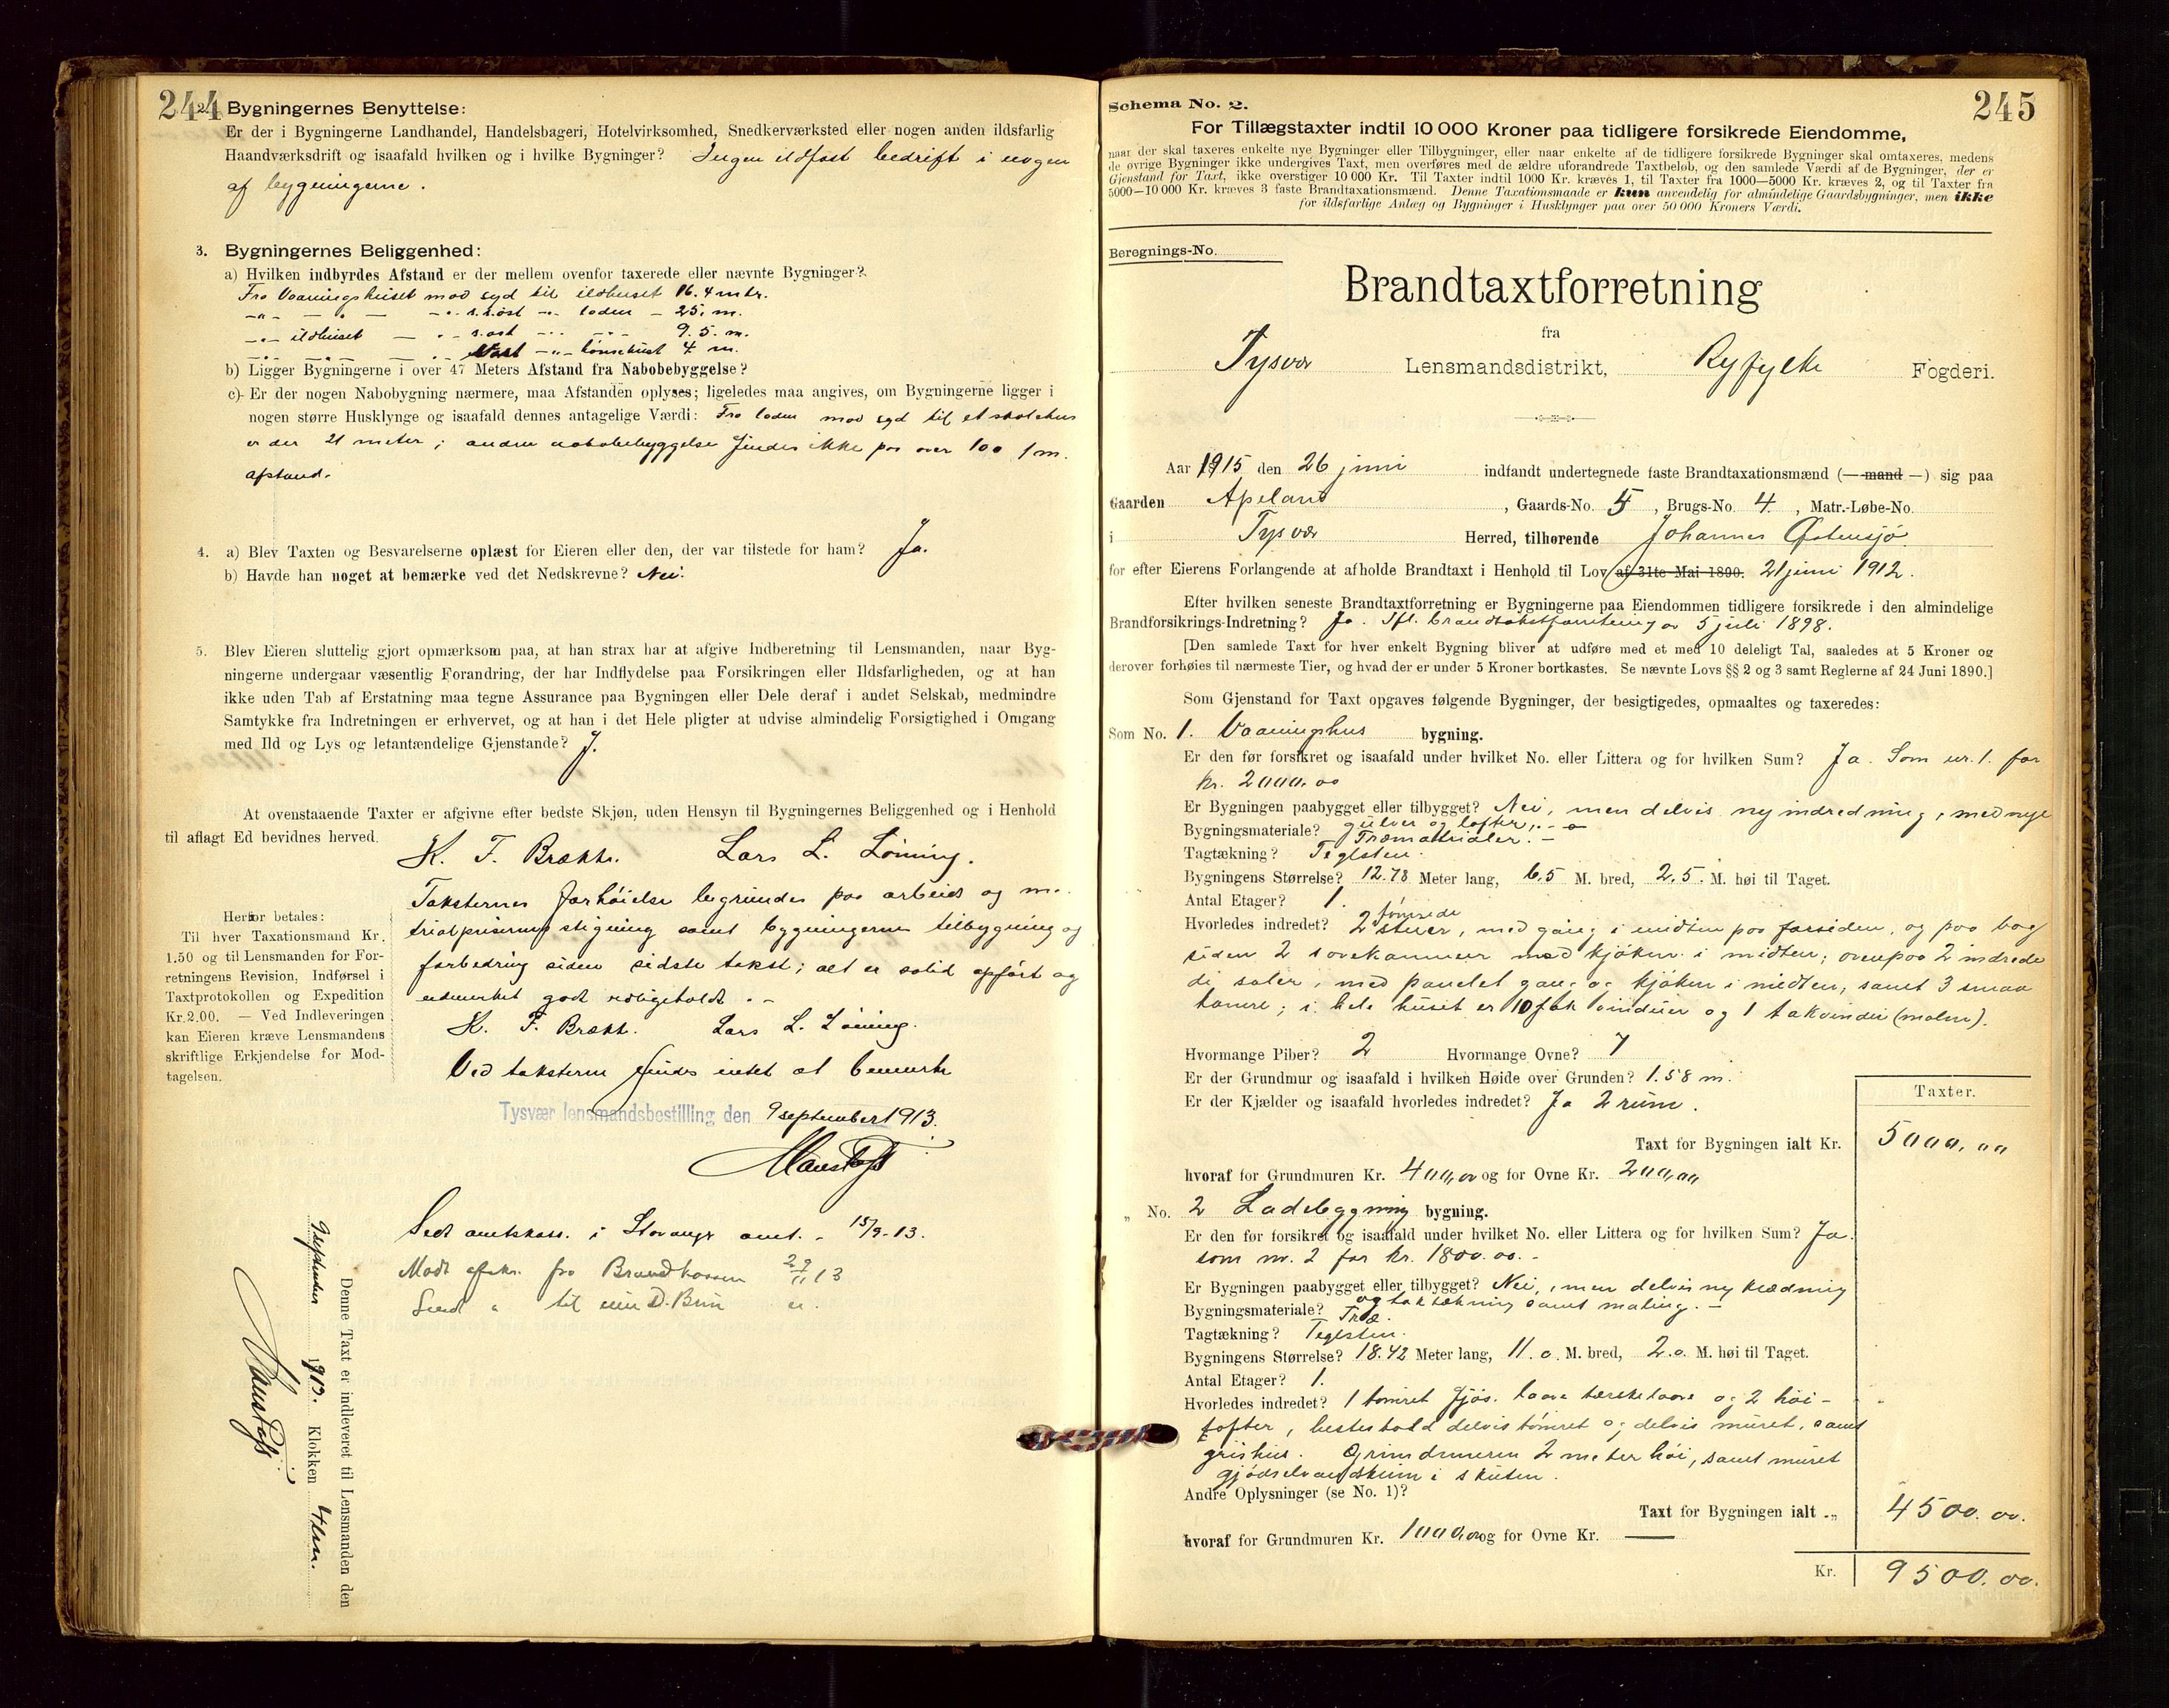 244
2. Bygningernes Benyttelse:
Er der i Bygningerne Landhandel, Handelsbageri, Hotelvirksomhed, Snedkerværksted eller nogen anden ildsfarlig
Haandværksdrift og isaafald hvilken og i hvilke Bygninger? Ingen ildfast bedrift i nogen
af bygningerne.
3. Bygningernes Beliggenhed:
a) Hvilken indbyrdes Afstand er der mellem ovenfor taxerede eller nævnte Bygninger?
Fra Vaaningshuset mod syd til ildhuset 16.4 mtr.
-"- - " - -"- s.s.øst -"- laden - 25. m.
-"- ildhuset - " - s.øst -"- -"- 9.5. m.
-"- -"- - " - Vest -"- hønsehust 4 m.
b) Ligger Bygningerne i over 47 Meters Afstand fra Nabobebyggelse?
c) Er der nogen Nabobygning nærmere, maa Afstanden oplyses; ligeledes maa angives, om Bygningerne ligger i
nogen større Husklynge og isaafald dennes antagelige Værdi: Fra laden mod syd til et skolehus
er der 21 meter; anden nabobebyggelse findes ikke paa over 100 m.
afstand.
4. a) Blev Taxten og Besvarelserne oplæst for Eieren eller den, der var tilstede for ham? Ja.
b) Havde han noget at bemærke ved det Nedskrevne? Nei.
5. Blev Eieren sluttelig gjort opmærksom paa, at han strax har at afgive Indberetning til Lensmanden, naar Byg-
ningerne undergaar væsentlig Forandring, der har Indflydelse paa Forsikringen eller Ildsfarligheden, og at han
ikke uden Tab af Erstatning maa tegne Assurance paa Bygningen eller Dele deraf i andet Selskab, medmindre
Samtykke fra Indretningen er erhvervet, og at han i det Hele pligter at udvise almindelig Forsigtighed i Omgang
med Ild og Lys og letantændelige Gjenstande? J.
At ovenstaaende Taxter er afgivne efter bedste Skjøn, uden Hensyn til Bygningernes Beliggenhed og i Henhold
til aflagt Ed bevidnes herved.
K. F. Brækk. Lars L. Løining.
Taksternes forhøielse begrundes paa arbeids og ma-
trialprisernes stigning samt bygningernes tilbygning og
forbedring siden sidste takst; alt er solid opført og
udmerket godt vedligeholdt. -
K. F. Brækk. Lars L. Løining.
Ved taksterne findes intet at bemerke
Tysvær lensmandsbestilling den 9 september 1913.
Herfor betales:
Til hver Taxationsmand Kr.
1.50 og til Lensmanden for For-
retningens Revision, Indførsel i
Taxtprotokollen og Expedition
Kr. 2.00. — Ved Indleveringen
kan Eieren kræve Lensmandens
skriftlige Erkjendelse for Mod-
tagelsen.
Sendt amtskass. i Stavanger amt. - 15/9-13.
Modt afskr. fra Brandkassen 29/11 13
Sendt " til
Denne Taxt er indleveret til Lensmanden den
9 september 1913. Klokken 4 em.
245
Schema No. 2.
For Tillægstaxter indtil 10 000 Kroner paa tidligere forsikrede Eiendomme,
naar der skal taxeres enkelte nye Bygninger eller Tilbygninger, eller naar enkelte af de tidligere forsikrede Bygninger skal omtaxeres, medens
de øvrige Bygninger ikke undergives Taxt, men overføres med de ældre uforandrede Taxtbeløb, og den samlede Værdi af de Bygninger, der er
Gjenstand for Taxt, ikke overstiger 10 000 Kr. Til Taxter indtil 1000 Kr. kræves 1, til Taxter fra 1000—5000 Kr. kræves 2, og til Taxter fra
5000—10 000 Kr. kræves 3 faste Brandtaxationsmænd. Denne Taxationsmaade er kun anvendelig for almindelige Gaardsbygninger, men ikke
for ildsfarlige Anlæg og Bygninger i Husklynger paa over 50 000 Kroners Værdi.
Beregnings-No.
Brandtaxtforretning
fra
Tysvær Lensmandsdistrikt, Ryfylke Fogderi.
Aar 1915 den 26 juni indfandt undertegnede faste Brandtaxationsmænd (— mand —) sig paa
Gaarden Apeland, Gaards-No. 5, Brugs-No. 4, Matr.-Løbe-No.
i Tysvær Herred, tilhørende Johannes Østensjø
for efter Eierens Forlangende at afholde Brandtaxt i Henhold til Lov af 31te Mai 1890. 21 juni 1912.
Efter hvilken seneste Brandtaxtforretning er Bygningerne paa Eiendommen tidligere forsikrede i den almindelige
Brandforsikrings-Indretning? Ja. Ifl. brandtakstforretning av 5 juli 1898.
[Den samlede Taxt for hver enkelt Bygning bliver at udføre med et med 10 deleligt Tal, saaledes at 5 Kroner og
derover forhøies til nærmeste Tier, og hvad der er under 5 Kroner bortkastes. Se nævnte Lovs §§ 2 og 3 samt Reglerne af 24 Juni 1890.]
Som Gjenstand for Taxt opgaves følgende Bygninger, der besigtigedes, opmaaltes og taxeredes:
Som No. 1. Vaaningshus bygning.
Er den før forsikret og isaafald under hvilket No. eller Littera og for hvilken Sum? Ja. Som nr. 1. for
kr. 2000,00
Er Bygningen paabygget eller tilbygget? Nei, men delvis ny indredning, med nye
gulver og lofter. -
Bygningsmateriale? Træmaterialer. -
Tagtækning? Teglsten.
Bygningens Størrelse? 12.78 Meter lang, 6.5 M. bred, 2.5. M. høi til Taget.
Antal Etager? 1.
Hvorledes indredet? 2 tømrede stuer, med gang i midten paa forsiden, og paa bag
siden 2 sovekammer med kjøken i midten; ovenpaa 2 indrede
de saler, med panelet gang og kjøken i midten, samt 3 smaa
tamre; i hele huset er 10 fak vinduer og 1 takvindu (malm).
Hvormange Piber? 2 Hvormange Ovne? 7
Er der Grundmur og isaafald i hvilken Høide over Grunden? 1.58 m.
Er der Kjælder og isaafald hvorledes indredet? Ja 2 rum.
Taxter.
Taxt for Bygningen ialt Kr. 5000,00
hvoraf for Grundmuren Kr. 400,00 og for Ovne Kr. 200,00
„ No. 2 Ladebygning bygning.
Er den før forsikret og isaafald under hvilket No. eller Littera og for hvilken Sum? Ja.
som nr. 2 for kr. 1800.00. -
Er Bygningen paabygget eller tilbygget? Nei, men delvis ny klædning
og taktækning samt maling. -
Bygningsmateriale? Træ.
Tagtækning? Teglsten.
Bygningens Størrelse? 18.42 Meter lang, 11.0 M. bred, 2.0. M. høi til Taget.
Antal Etager? 1.
Hvorledes indredet? 1 tømret fjøs. laave tærskelaave og 2 høi-
lofter, hestestald delvis tømret og delvis muret, samt
grishus. Grundmuren 2 meter høi, samt muret
gjødselvandskum i skuten.
Andre Oplysninger (se No. 1)?
Taxt for Bygningen ialt „ 4500.00.
hvoraf for Grundmuren Kr. 1000,00 og for Ovne Kr. —
Kr. 9500.00.